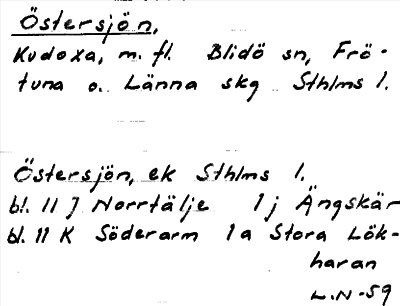 Östersjön,
Kudoxa, m. fl. Blidö sn, Frö-
tuna o. Länna skg Sthlms l.
Östersjön, ek Sthlms l.
bl. 11 J Norrtälje 1 j Ängskär
bl. 11 K Söderarm 1 a Stora Lök-
haran
L.N-59